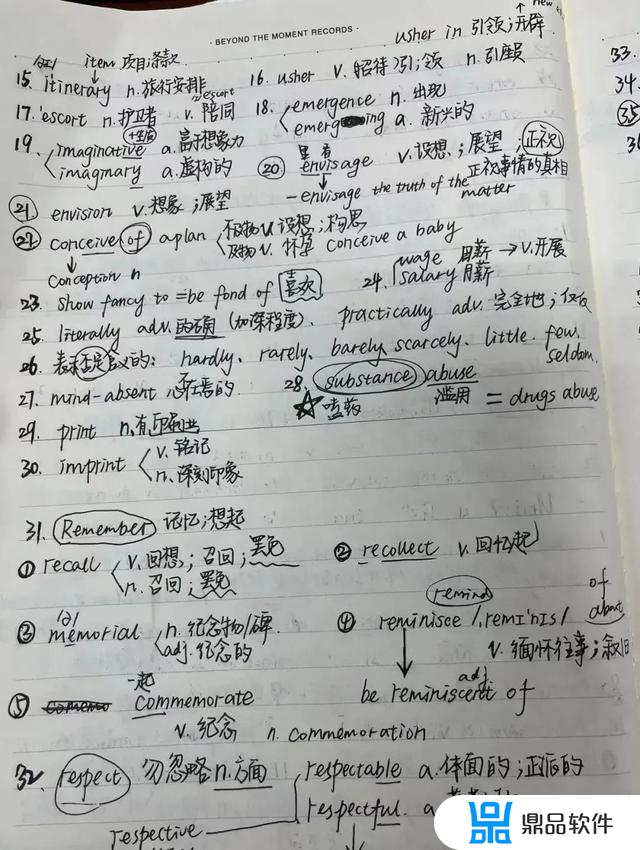 · BEYOND THE MOMENT RECORDS ·
usher in 引领;开辟
new
item 项目;条款
15. itinerary n.旅行安排
16. usher v.招待;引;领 n.引座员
escort
17. escort n.护卫者 v.陪同
18. emergence n.出现
emerging a.新兴的
19. imaginative a.富于想象力
imaginary a.虚构的
20 envisage v.设想;展望;正视
-envisage the truth of the matter 正视事情的真相
21 envision v.想象;展望
22 conceive of a plan 不及物v.设想;构思
及物v.怀孕 conceive a baby
conception n
23. show fancy to = be fond of 喜欢
24. wage 周薪 → v.开展
salary 月薪
25. literally adv.的确(加深程度). practically adv.完全地;仅仅
26. 表示否定含义的: hardly. rarely. barely. scarcely. little. few. seldom.
27. mind-absent 心不在焉的
28. substance abuse
嗑药 滥用 = drugs abuse
29. print n.有印刷业
30. imprint v.铭记
n.深刻印象
31. Remember 记忆;想起
① recall v.回想;召回;罢免
n.召回;罢免
② recollect v.回忆起
remind of about
③ memorial n.纪念物/碑
adj.纪念的
④ reminisce /ˌremɪ'nɪs/
v.缅怀往事;叙旧
adj
be reminiscent of
一起
⑤ commemorate
v.纪念 n. commemoration
32. respect 勿忽略n.方面
respectable a.体面的;正派的
respectful. a
respective
鼎品软件